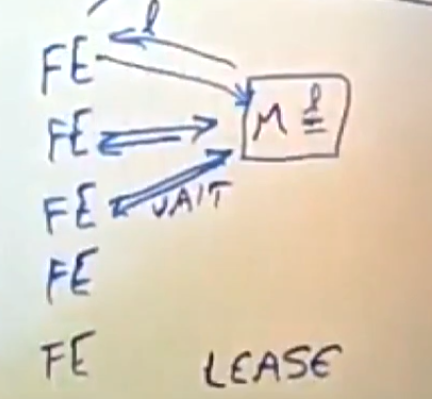 l
FE
M l
FE
FE WAIT
FE
FE LEASE